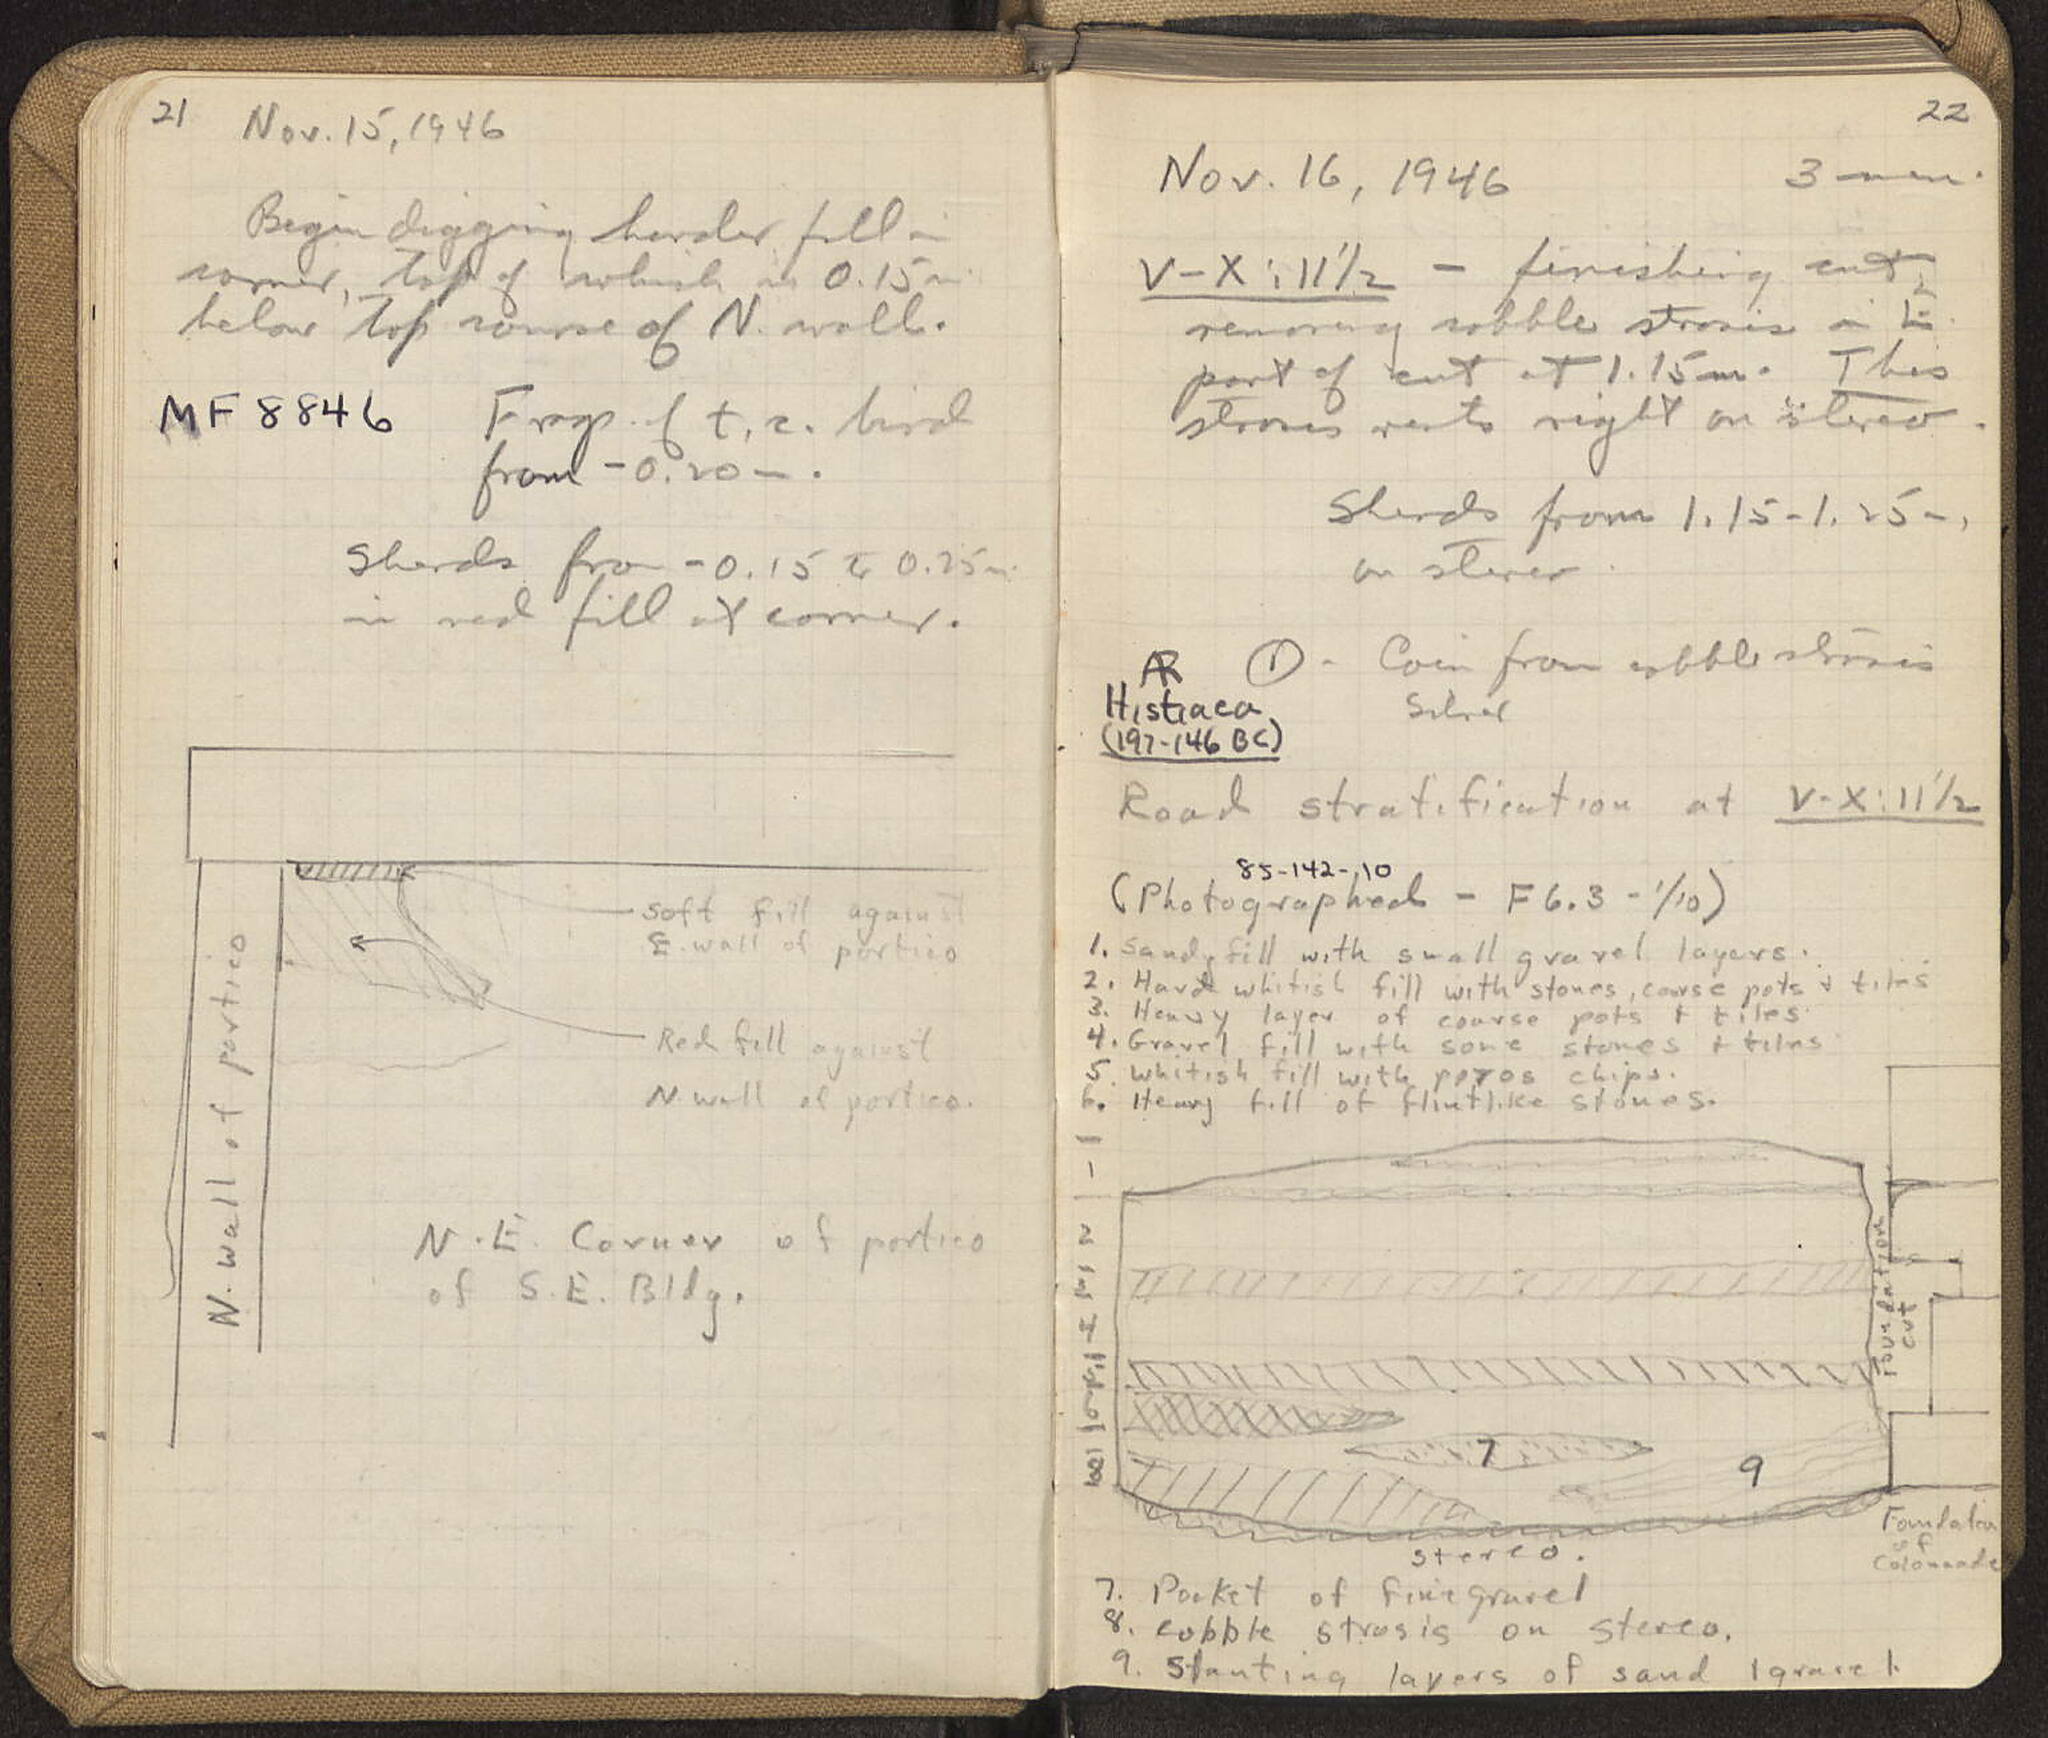 21 Nov. 15, 1946
Begin digging harder fill in
corner, top of which is 0.15m
below top course of N. wall.
MF 8846 Frag. of t.c. bird
from -0.20m.
Sherds from -0.15 to 0.25m.
in red fill at corner.
Soft fill against
E. wall of portico
Red fill against
N. wall of portico.
N. wall of portico
N.E. Corner of portico
of S.E. Bldg.
22
Nov. 16, 1946 3 men.
V-X:11 1/2 - finishing cut,
removing cobble strosis in E.
part of cut at 1.15m. This
strosis rests right on stereo.
Sherds from 1.15-1.25m,
on stereo.
AR ① - Coin from cobble strosis
Histiaea Silver
(197-146 BC)
Road stratification at V-X:11 1/2
85-142-10
(Photographed - F 6.3 - 1/10)
1. Sandy fill with small gravel layers.
2. Hard whitish fill with stones, coarse pots + tiles
3. Heavy layer of coarse pots + tiles.
4. Gravel fill with some stones + tiles
5. Whitish fill with poros chips.
6. Heavy fill of flintlike stones.
1
2
3
4
5
6
8
7
9
Foundation
cut
stereo.
Foundation
of
Colonnade
7. Pocket of fine gravel
8. cobble strosis on stereo.
9. Slanting layers of sand + gravel.